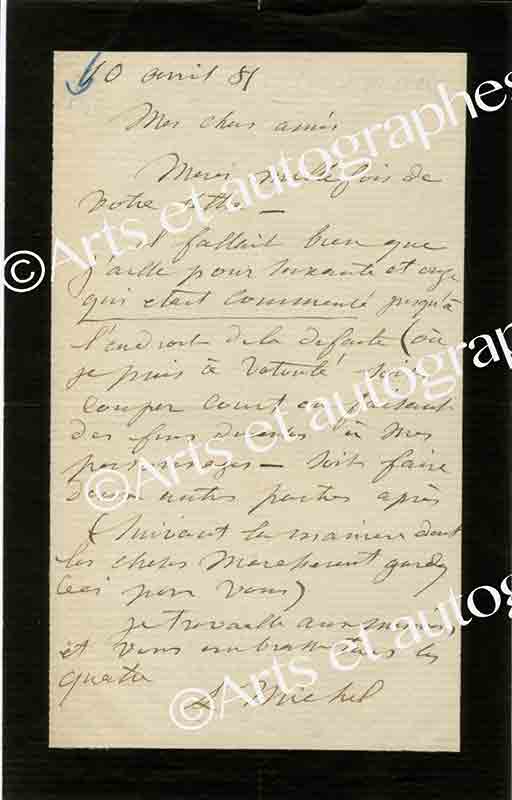 10 avril 81
Mes chers amis
Merci mille fois de
votre lettre —
il fallait bien que
j'aille pour soixante et onze
qui etait commencé jusqu'à
l'endroit de la defaite (où
je puis à volonté soit
couper court en faisant
des fins diverses à mes
personnages — soit faire
deux autres parties après
(suivant la maniere dont
les choses marcheront gardez
ceci pour vous)
je travaille aux
et vous embrasse tous les
quatre
L Michel
©Arts et autographes
©Arts et autographes
©Arts et autographes
©Arts et autographes